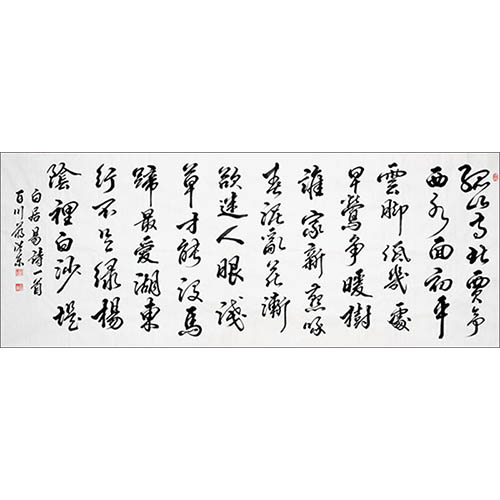 孤山寺北賈亭
西水面初平
雲腳低幾處
早鶯争暖樹
誰家新燕啄
春泥亂花漸
欲迷人眼淺
草才能沒馬
蹄最愛湖東
行不足綠楊
陰裡白沙堤
白居易詩一首
百川